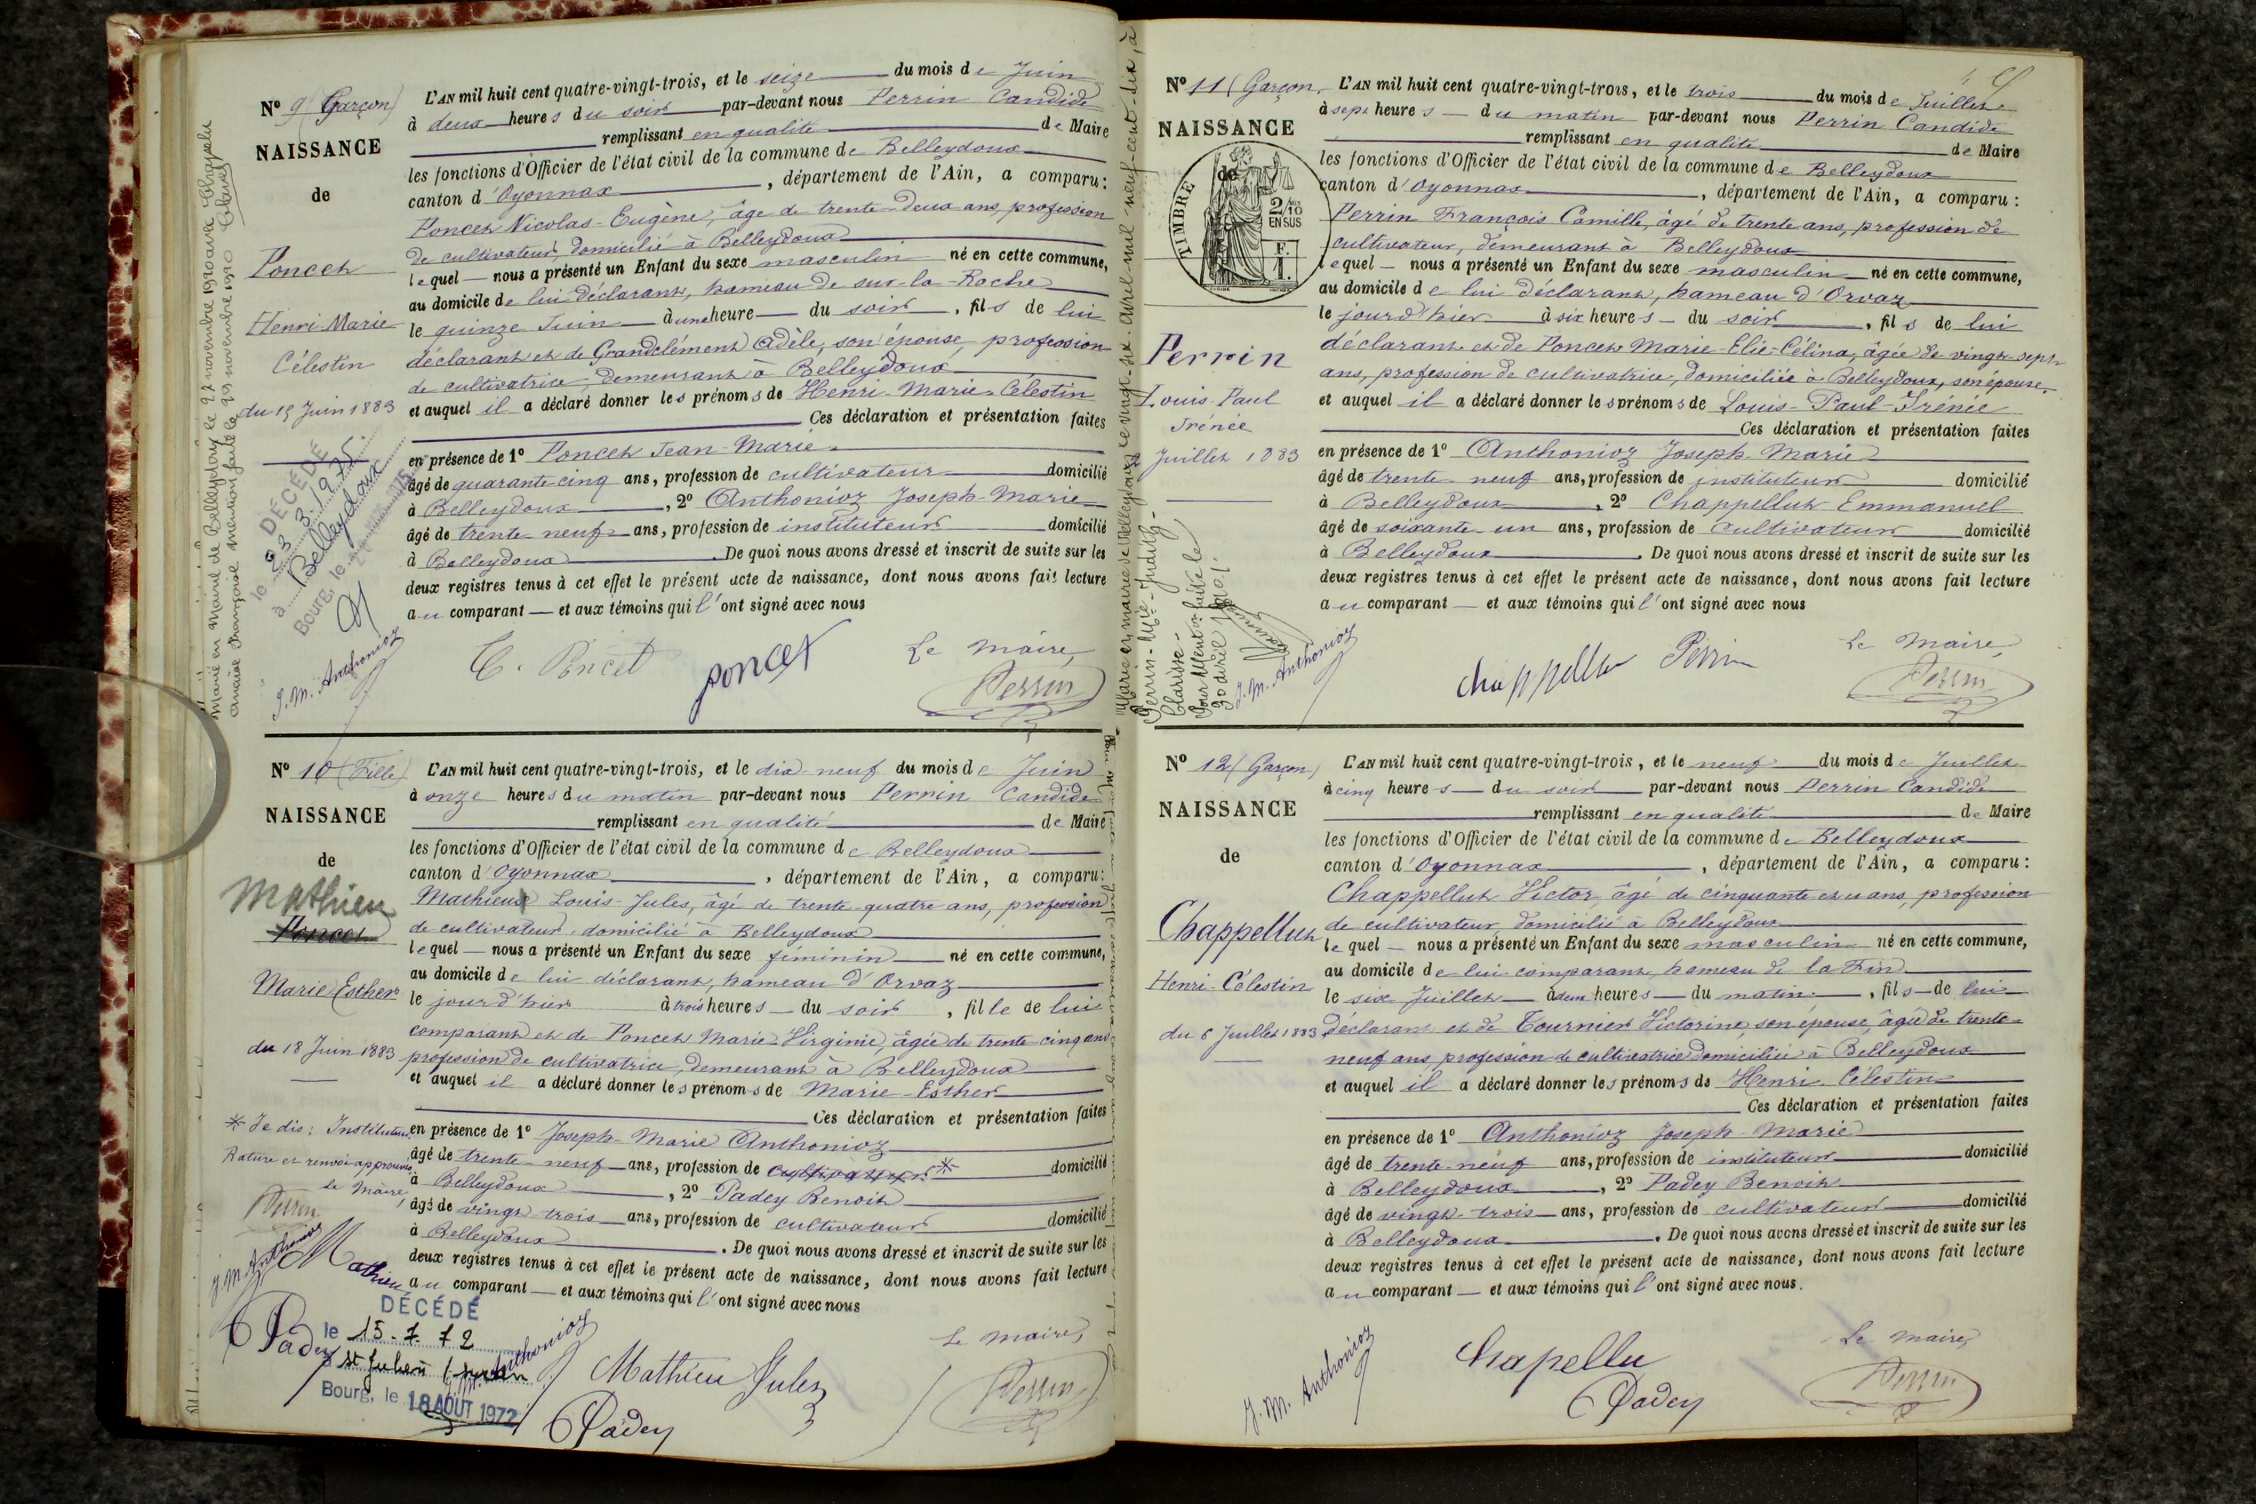 N° 9 (Garçon)
NAISSANCE
de
Poncet
Henri Marie
Célestin
du 15 Juin 1883
Marié en Mairie de Belleydoux le 22 novembre 1910 avec Chappellu
mention faite le 29 novembre 1910
DÉCÉDÉ
le 23.3.1975
à Belleydoux
Bourg, le
L'AN mil huit cent quatre-vingt-trois, et le seize du mois de Juin
à deux heures du soir par-devant nous Perrin Candide
remplissant en qualité de Maire
les fonctions d'Officier de l'état civil de la commune de Belleydoux
canton d'Oyonnax, département de l'Ain, a comparu:
Poncet Nicolas-Eugène, âgé de trente-deux ans, profession
de cultivateur, domicilié à Belleydoux
lequel nous a présenté un Enfant du sexe masculin né en cette commune,
au domicile de lui déclarant, hameau de sur-la-Roche
le quinze Juin à une heure du soir, fils de lui
déclarant et de Grandclément Adèle, son épouse, profession
de cultivatrice, demeurant à Belleydoux
et auquel il a déclaré donner les prénoms de Henri-Marie-Célestin
Ces déclaration et présentation faites
en présence de 1° Poncet Jean-Marie
âgé de quarante-cinq ans, profession de cultivateur domicilié
à Belleydoux, 2° Anthonioz Joseph-Marie
âgé de trente-neuf ans, profession de instituteur domicilié
à Belleydoux. De quoi nous avons dressé et inscrit de suite sur les
deux registres tenus à cet effet le présent acte de naissance, dont nous avons fait lecture
au comparant et aux témoins qui l'ont signé avec nous
J. M. Anthonioz
Poncet
poncet
Le Maire,
Perrin
N° 10 (Fille)
NAISSANCE
de
Mathieu
Poncet
Marie Esther
du 18 Juin 1883
* Je dis: Instituteur
Rature et renvoi approuvés
Le Maire,
Perrin
J. M. Anthonioz
Mathieu
Padey
DÉCÉDÉ
le 15.7.72
St Julien s/ suran
Bourg, le 18 AOUT 1972
L'AN mil huit cent quatre-vingt-trois, et le dix-neuf du mois de Juin
à onze heures du matin par-devant nous Perrin Candide
remplissant en qualité de Maire
les fonctions d'Officier de l'état civil de la commune de Belleydoux
canton d'Oyonnax, département de l'Ain, a comparu:
Mathieu Louis-Jules, âgé de trente-quatre ans, profession
de cultivateur, domicilié à Belleydoux
lequel nous a présenté un Enfant du sexe féminin né en cette commune,
au domicile de lui déclarant, hameau d'Orvaz
le jour d'hier à trois heures du soir, fille de lui
comparant et de Poncet Marie-Virginie, âgée de trente-cinq ans
profession de cultivatrice, demeurant à Belleydoux
et auquel il a déclaré donner les prénoms de Marie-Esther
Ces déclaration et présentation faites
en présence de 1° Joseph-Marie Anthonioz
âgé de trente-neuf ans, profession de cultivateur * domicilié
à Belleydoux, 2° Padey Benoit
âgé de vingt-trois ans, profession de cultivateur domicilié
à Belleydoux. De quoi nous avons dressé et inscrit de suite sur les
deux registres tenus à cet effet le présent acte de naissance, dont nous avons fait lecture
au comparant et aux témoins qui l'ont signé avec nous
J. M. Anthonioz
Mathieu Jules
Padey
Le Maire,
Perrin
N° 11 (Garçon)
NAISSANCE
de
TIMBRE
2/10 EN SUS
F. 1.
Perrin
Louis-Paul
Irénée
2 Juillet 1883
Marié en mairie de Belleydoux, le vingt-six avril mil neuf cent dix, à
Perrin-Mie-Judith-
Clarisse-
Pour Mention faite le
30 avril 1910
J. M. Anthonioz
L'AN mil huit cent quatre-vingt-trois, et le trois du mois de Juillet
à sept heures du matin par-devant nous Perrin Candide
remplissant en qualité de Maire
les fonctions d'Officier de l'état civil de la commune de Belleydoux
canton d'Oyonnax, département de l'Ain, a comparu:
Perrin François Camille, âgé de trente ans, profession de
cultivateur, demeurant à Belleydoux
lequel nous a présenté un Enfant du sexe masculin né en cette commune,
au domicile de lui déclarant, hameau d'Orvaz
le jour d'hier à six heures du soir, fils de lui
déclarant et de Poncet Marie-Elie-Célina, âgée de vingt-sept
ans, profession de cultivatrice, domiciliée à Belleydoux, son épouse,
et auquel il a déclaré donner les prénoms de Louis-Paul-Irénée
Ces déclaration et présentation faites
en présence de 1° Anthonioz Joseph-Marie
âgé de trente-neuf ans, profession de instituteur domicilié
à Belleydoux, 2° Chappellut Emmanuel
âgé de soixante-un ans, profession de cultivateur domicilié
à Belleydoux. De quoi nous avons dressé et inscrit de suite sur les
deux registres tenus à cet effet le présent acte de naissance, dont nous avons fait lecture
au comparant et aux témoins qui l'ont signé avec nous
Chappellu
Perrin
Le Maire,
Perrin
N° 12 (Garçon)
NAISSANCE
de
Chappellut
Henri-Célestin
du 6 Juillet 1883
L'AN mil huit cent quatre-vingt-trois, et le neuf du mois de Juillet
à cinq heures du soir par-devant nous Perrin Candide
remplissant en qualité de Maire
les fonctions d'Officier de l'état civil de la commune de Belleydoux
canton d'Oyonnax, département de l'Ain, a comparu:
Chappellut Victor, âgé de cinquante et u ans, profession
de cultivateur, domicilié à Belleydoux
lequel nous a présenté un Enfant du sexe masculin né en cette commune,
au domicile de lui comparant, hameau de la Fin
le six Juillet à deux heures du matin, fils de lui
déclarant et de Tournier Victorine, son épouse, âgée de trente-
neuf ans, profession de cultivatrice domiciliée à Belleydoux
et auquel il a déclaré donner les prénoms de Henri-Célestin
Ces déclaration et présentation faites
en présence de 1° Anthonioz Joseph-Marie
âgé de trente-neuf ans, profession de instituteur domicilié
à Belleydoux, 2° Padey Benoit
âgé de vingt-trois ans, profession de cultivateur domicilié
à Belleydoux. De quoi nous avons dressé et inscrit de suite sur les
deux registres tenus à cet effet le présent acte de naissance, dont nous avons fait lecture
au comparant et aux témoins qui l'ont signé avec nous.
J. M. Anthonioz
Chapellu
Padey
Le Maire,
Perrin